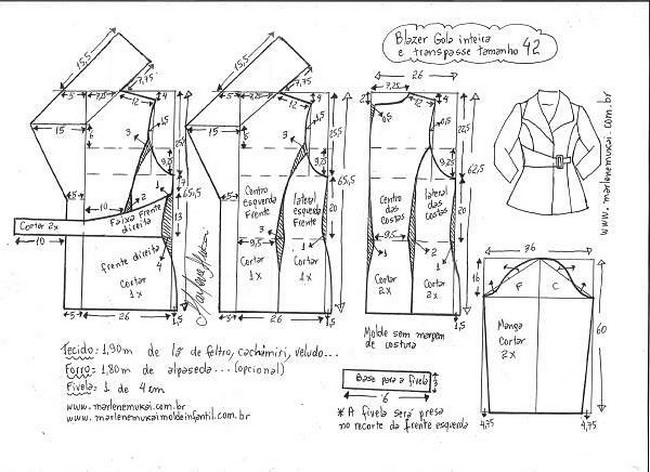 Blazer Gola inteira
e transpasse tamanho 42
15,5
7,75
5
7,5
12
4
15
6
3
1,5
25,5
9,25
7
65,5
5
10
2
13
Cortar 2x
Faixa Frente
direita
10
frente direita
4
Cortar
1x
5
26
1,5
Marlene Mukai
15,5
7,75
5
7,25
12
4
15
6
3
1,5
25,5
9,25
65,5
5
Centro
esquerda
Frente
lateral
esquerda
Frente
20
3
9,5
1
Cortar
1x
Cortar
1x
5
26
1,5
26
7,25
2
0,5
12
4
0,5
22,5
9,25
62,5
Centro
das
costas
lateral
das
costas
20
9,5
1
2
1
Cortar
2x
Cortar
2x
1,5
www.marlenemukai.com.br
36
16
F
C
60
Manga
Cortar
2x
4,75
4,75
Molde sem margem
de costura
Base para a fivela
3
6
* A fivela será presa
no recorte da frente esquerda
Tecido: 1,90m de lã de feltro, cachimiri, veludo...
Forro: 1,80m de alpaseda... (opcional)
Fivela: 1 de 4 cm
www.marlenemukai.com.br
www.marlenemukaimoldeinfantil.com.br